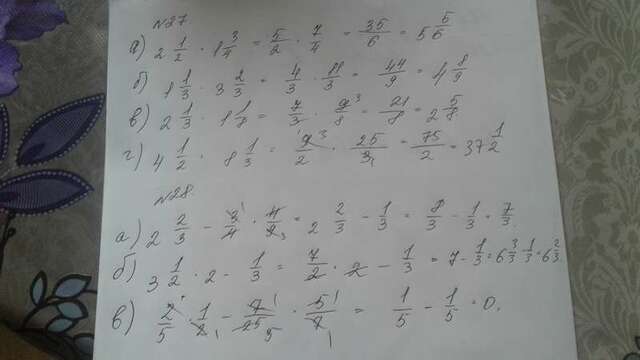 №27.
а) 2 1/2 · 1 3/4 = 5/2 · 7/4 = 35/6 = 5 5/6
б) 1 1/3 · 3 2/3 = 4/3 · 11/3 = 44/9 = 4 8/9
в) 2 1/3 · 1 1/8 = 7/3 · 9³/8 = 21/8 = 2 5/8.
г) 4 1/2 · 8 1/3 = 9³/2 · 25/3₁ = 75/2 = 37 1/2
№28.
а) 2 2/3 - 3¹/4 · 4/9₃ = 2 2/3 - 1/3 = 8/3 - 1/3 = 7/3.
б) 3 1/2 · 2 - 1/3 = 7/2 · 2 - 1/3 = 7 - 1/3 = 6 3/3 - 1/3 = 6 2/3.
в) 2/5 · 1/2₁ - 7¹/25₅ · 5¹/7₁ = 1/5 - 1/5 = 0.